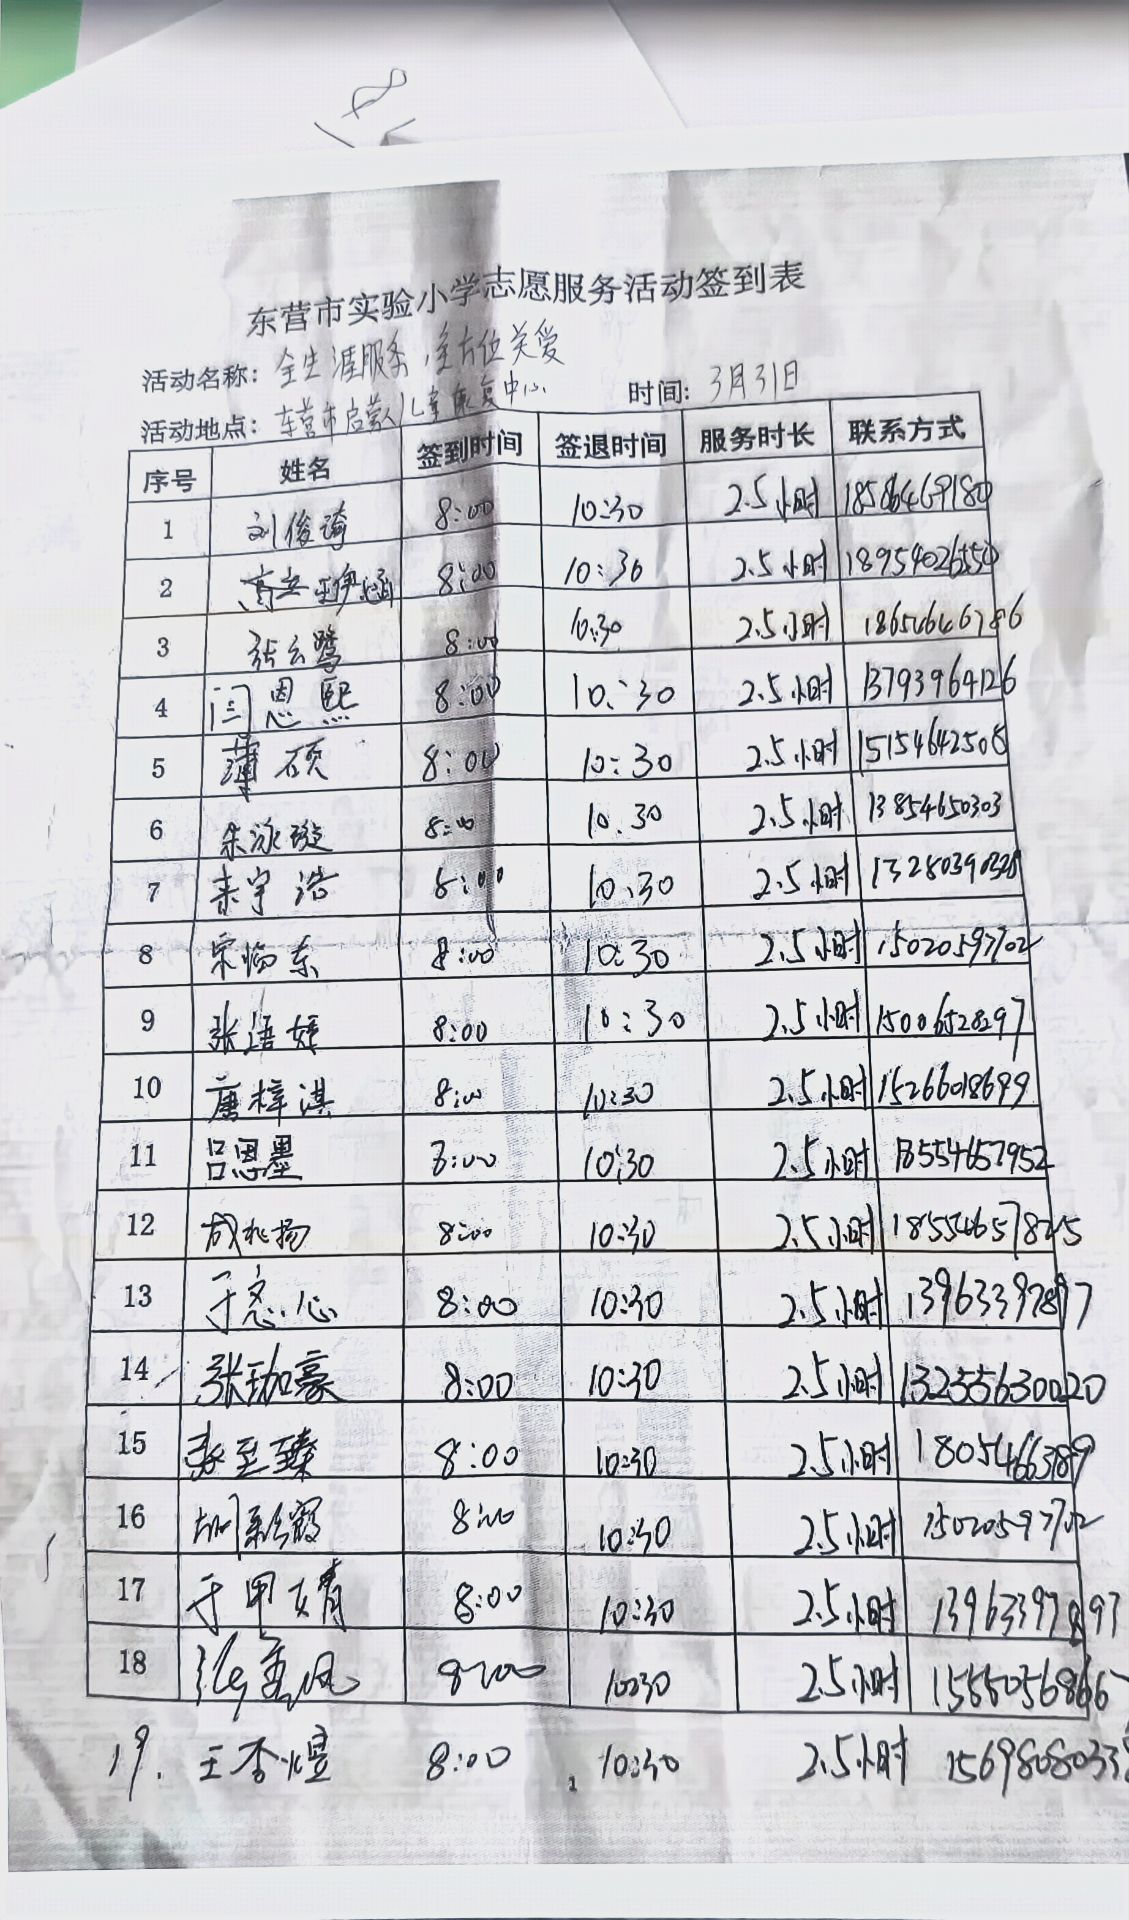 东营市实验小学志愿服务活动签到表
活动名称：全生涯服务，全方位关爱
活动地点：东营市启蒙儿童康复中心 时间：3月31日
序号 姓名 签到时间 签退时间 服务时长 联系方式
1 刘俊琦 8:00 10:30 2.5小时 18586469180
2 8:00 10:30 2.5小时 18954026550
3 张云鹭 8:00 10:30 2.5小时 18654646786
4 闫恩熙 8:00 10:30 2.5小时 13793964126
5 薄硕 8:00 10:30 2.5小时 15154642508
6 朱泳璇 8:00 10:30 2.5小时 13854650303
7 宇浩 8:00 10:30 2.5小时
8 8:00 10:30 2.5小时 15020597702
9 张语婷 8:00 10:30 2.5小时 15006528297
10 唐梓淇 8:00 10:30 2.5小时 15266018699
11 吕思墨 8:00 10:30 2.5小时 18554657952
12 8:00 10:30 2.5小时
13 于心 8:00 10:30 2.5小时 13963397897
14 张珈豪 8:00 10:30 2.5小时
15 张至臻 8:00 10:30 2.5小时 18054663789
16 胡彩霞 8:00 10:30 2.5小时 15020597702
17 于甲婧 8:00 10:30 2.5小时 13963397897
18 8:00 10:30 2.5小时
19. 王杏煊 8:00 10:30 2.5小时 15698080338
1